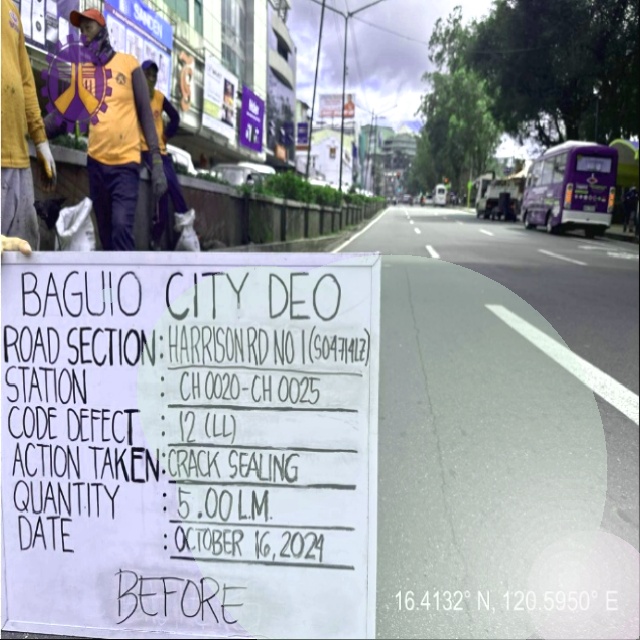 BAGUIO CITY DEO
ROAD SECTION: HARRISON RD NO 1 (S04714LZ)
STATION : CH 0020-CH 0025
CODE DEFECT : 12 (LL)
ACTION TAKEN: CRACK SEALING
QUANTITY : 5.00 L.M.
DATE : OCTOBER 16, 2024
BEFORE
16.4132° N, 120.5950° E